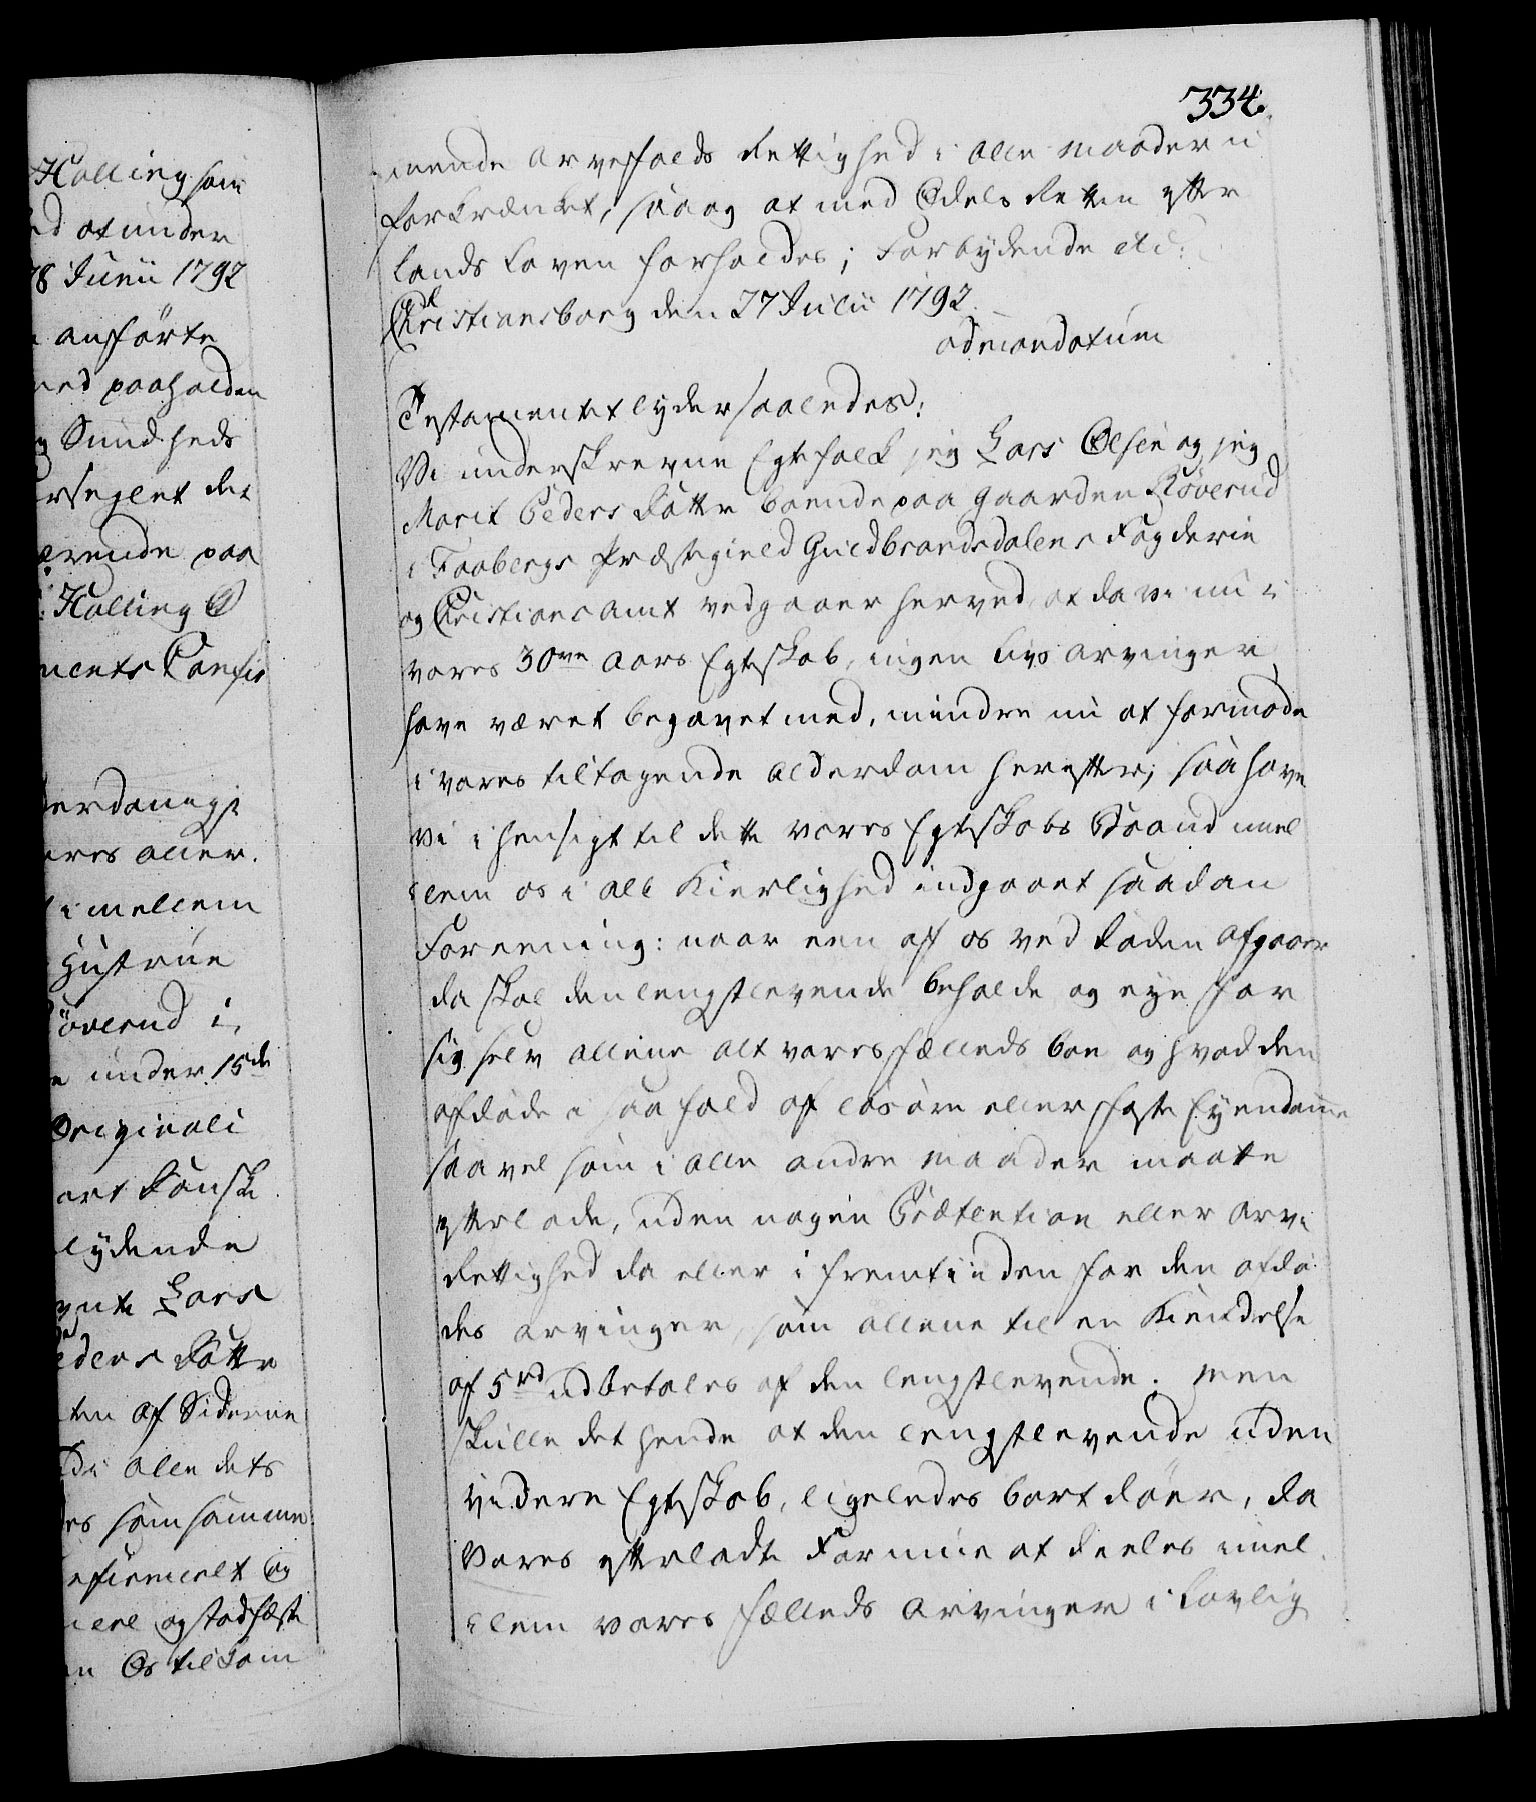 Halling som
ed at under
28 Junii 1792
anførte
med paaholden
og Sundheds
forseglet det
værende paa
Halling
ments Confir
derdanigst
eres aller
imellem
Hustrue
Röverud i
under 15de
Originali
art Dansk
lydende
Lars
Peders Datter
ten af Siderne
di alle dets
des som samme
confirmeret og
mere og stadfæste
en Os tilkom
334.
mende Arvefalds Rettighed i alle maader u¬
forkrænket, saa og at med Odels Retten efter
Lands Loven forholdes; Forbydende etc:
Christiansborg den 27 Julii 1792.
ad mandatum
Testamentet lyder saaledes:
Vi underskrevne Egtefolk jeg Lars Olsen og jeg
Marit Peders Datter boende paa Gaarden Röverud
i Faabergs Præstegield Guldbrandsdalens Fogderie
og Christians Amt vedgaaer herved, at da vi nu i
vores 30ve Aars Egteskab, ingen Livs Arvinger
have været begavet med, mindre nu at formode
i vores tiltagende Alderdom herefter; saa have
vi i hensigt til dette vores Egteskabs Baand imel
lem os i all Kierlighed indgaaet saadan
Foreening: naar een af os ved Døden afgaaer
da skal den lengstlevende beholde og eye for
sig selv alleene alt vores fælleds Boe og hvad den
afdøde i saa fald af løsøre eller faste Eyendomme
saavel som i alle andre maader maatte
efterlade, uden nogen Prætention eller Arve
Rettighed da eller i fremtiden for den afdø¬
des Arvinger, som allene til en Kiendelse
af 5 rd udbetales af den lengstlevende. Men
skulle det hende at den lengstlevende uden
videre Egteskab, ligeledes bortdøer, da
vores efterladte Formue at deeles imel
lem vores fælleds Arvinger i Lovlig